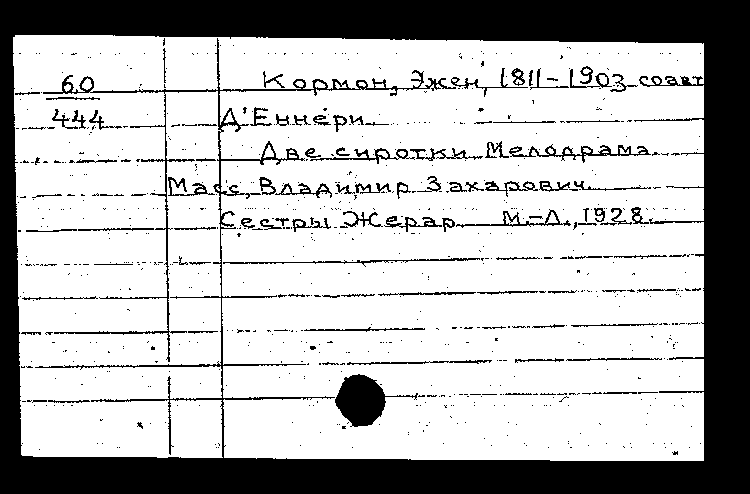 60 Кормон, Эжен, 1811-1903 соавт
444 Д'Еннери.
Две сиротки. Мелодрама.
Масс, Владимир Захарович.
Сестры Жерар. М.-Л., 1928.